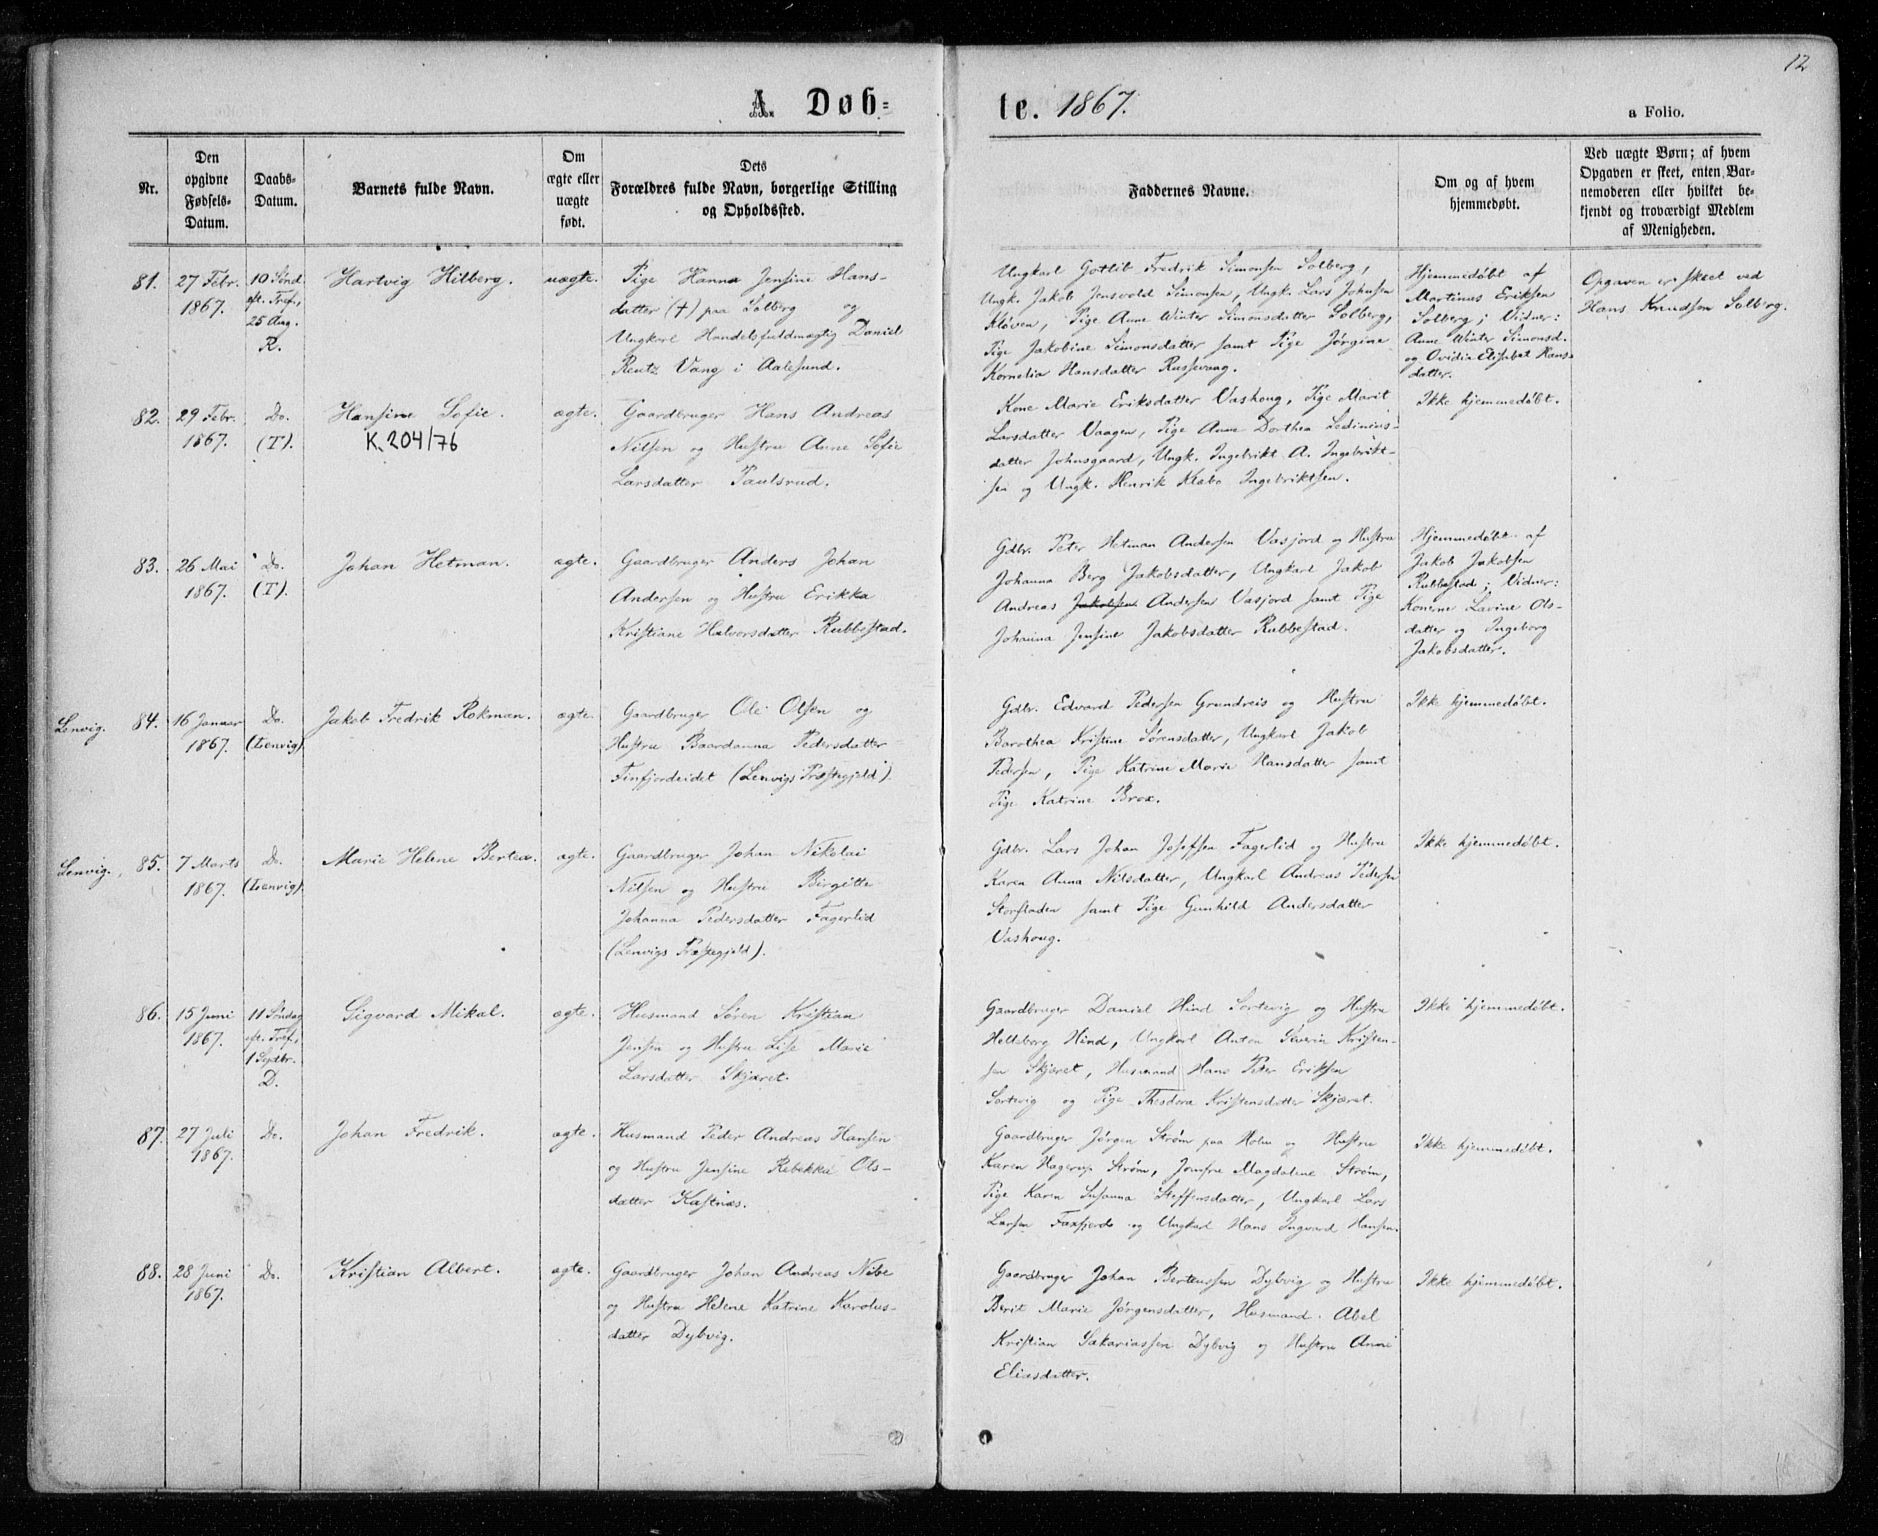 12
A. Døbte. 1867.
a Folio.
Nr.
Den opgivne Fødsels-Datum.
Daabs-Datum.
Barnets fulde Navn.
Om ægte eller uægte født.
Dets Forældres fulde Navn, borgerlige Stilling og Opholdssted.
Faddernes Navne.
Om og af hvem hjemmedøbt.
Ved uægte Børn; af hvem Opgaven er skeet, enten Barnemoderen eller hvilket bekjendt og troværdigt Medlem af Menigheden.
81.
27 Febr.
1867.
10 Sønd.
eft. Tref.,
25 Aug.
R.
Hartvig Hilberg.
uægte.
Pige Hanna Jensine Hans-
datter (†) paa Solberg og
Ungkarl Handelsfuldmægtig Daniel
Reutz Vang i Aalesund.
Ungkarl Gotlib Fredrik Simonsen Solberg,
Ungk. Jakob Jensvold Simonsen, Ungk. Lars Johnsen
Kløven, Pige Anne Winter Simonsdatter Solberg,
Pige Jakobine Simonsdatter samt Pige Jørgine
Kornelia Hansdatter Russevaag.
Hjemmedøbt af
Martinus Eriksen
Solberg; Vidner:
Anne Winter Simonsd.
og Ovidia Elisabet Hans-
datter.
Opgaven er skeet ved
Hans Knudsen Solberg.
82.
29 Febr.
1867.
Do.
(T).
Hansine Sofie.
K. 204/76
ægte.
Gaardbruger Hans Andreas
Nilsen og Hustru Anne Sofie
Larsdatter Paulsrud.
Kone Marie Eriksdatter Vashoug, Pige Marit
Larsdatter Vaagen, Pige Anne Dorthea
datter Johnsgaard, Ungk. Ingebrikt A. Ingebrikt-
sen og Ungk. Henrik Klæbo Ingebriktsen.
Ikke hjemmedøbt.
83.
26 Mai
1867.
Do.
(T).
Johan Hetman.
ægte.
Gaardbruger Anders Johan
Andersen og Hustru Erikka
Kristiane Halvorsdatter Rubbestad.
Gdbr. Peter Hetman Andersen Vasjord og Hustru
Johanna Berg Jakobsdatter, Ungkarl Jakob
Andreas Jakobsen Andersen Vasjord samt Pige
Johanna Jensine Jakobsdatter Rubbestad.
Hjemmedøbt af
Jakob Jakobsen
Rubbestad; Vidner:
Konerne Lavine Ols-
datter og Ingeborg
Jakobsdatter.
Lenvig.
84.
16 Januar
1867.
Do.
(Lenvig).
Jakob Fredrik Rokman.
ægte.
Gaardbruger Ole Olsen og
Hustru Baardanna Pedersdatter
Finfjordeidet (Lenvigs Præstegjeld).
Gdbr. Edvard Pedersen Grundreis og Hustru
Barothea Kristine Sørensdatter, Ungkarl Jakob
Pedersen, Pige Katrine Marie Hansdatter samt
Pige Katrine Brox.
Ikke hjemmedøbt.
Lenvig.
85.
7 Marts
1867.
Do.
(Lenvig).
Marie Helene Bertea.
ægte.
Gaardbruger Johan Nikolai
Nilsen og Hustru Birgitte
Johanna Pedersdatter Fagerlid
(Lenvigs Præstegjeld).
Gdbr. Lars Johan Josefsen Fagerlid og Hustru
Karen Anna Nilsdatter, Ungkarl Andreas Pedersen
Storsladen samt Pige Gunhild Andersdatter
Vashoug.
Ikke hjemmedøbt.
86.
15 Juni
1867.
11 Søndag
eft. Tref.,
1 Septbr.
D.
Sigvard Mikal.
ægte.
Husmand Søren Kristian
Jensen og Hustru Lise Marie
Larsdatter Skjæret.
Gaardbruger Daniel Hind Sortevig og Hustru
Helleborg Hind, Ungkarl Anton Severin Kristen-
sen Skjæret, Husmand Hans Peter Eriksen
Sortevig og Pige Theodora Kristensdatter Skjæret.
Ikke hjemmedøbt.
87.
27 Juli
1867.
Do.
Johan Fredrik.
ægte.
Husmand Peder Andreas Hansen
og Hustru Jensine Rebekka Ols-
datter Kastnæs.
Gaardbruger Jørgen Strøm paa Holm og Hustru
Karen Hagerup Strøm, Jomfru Magdalene Strøm,
Pige Karen Susanna Steffensdatter, Ungkarl Lars
Larsen Faxfjord og Ungkarl Hans Ingvard Hansen.
Ikke hjemmedøbt.
88.
28 Juni
1867.
Do.
Kristian Albert.
ægte.
Gaardbruger Johan Andreas Nibe
og Hustru Helene Katrine Karolus-
datter Dybvig.
Gaardbruger Johan Berteussen Dybvig og Hustru
Berit Marie Jørgensdatter, Husmand Abel
Kristian Sakariassen Dybvig og Hustru Anne
Eliasdatter.
Ikke hjemmedøbt.